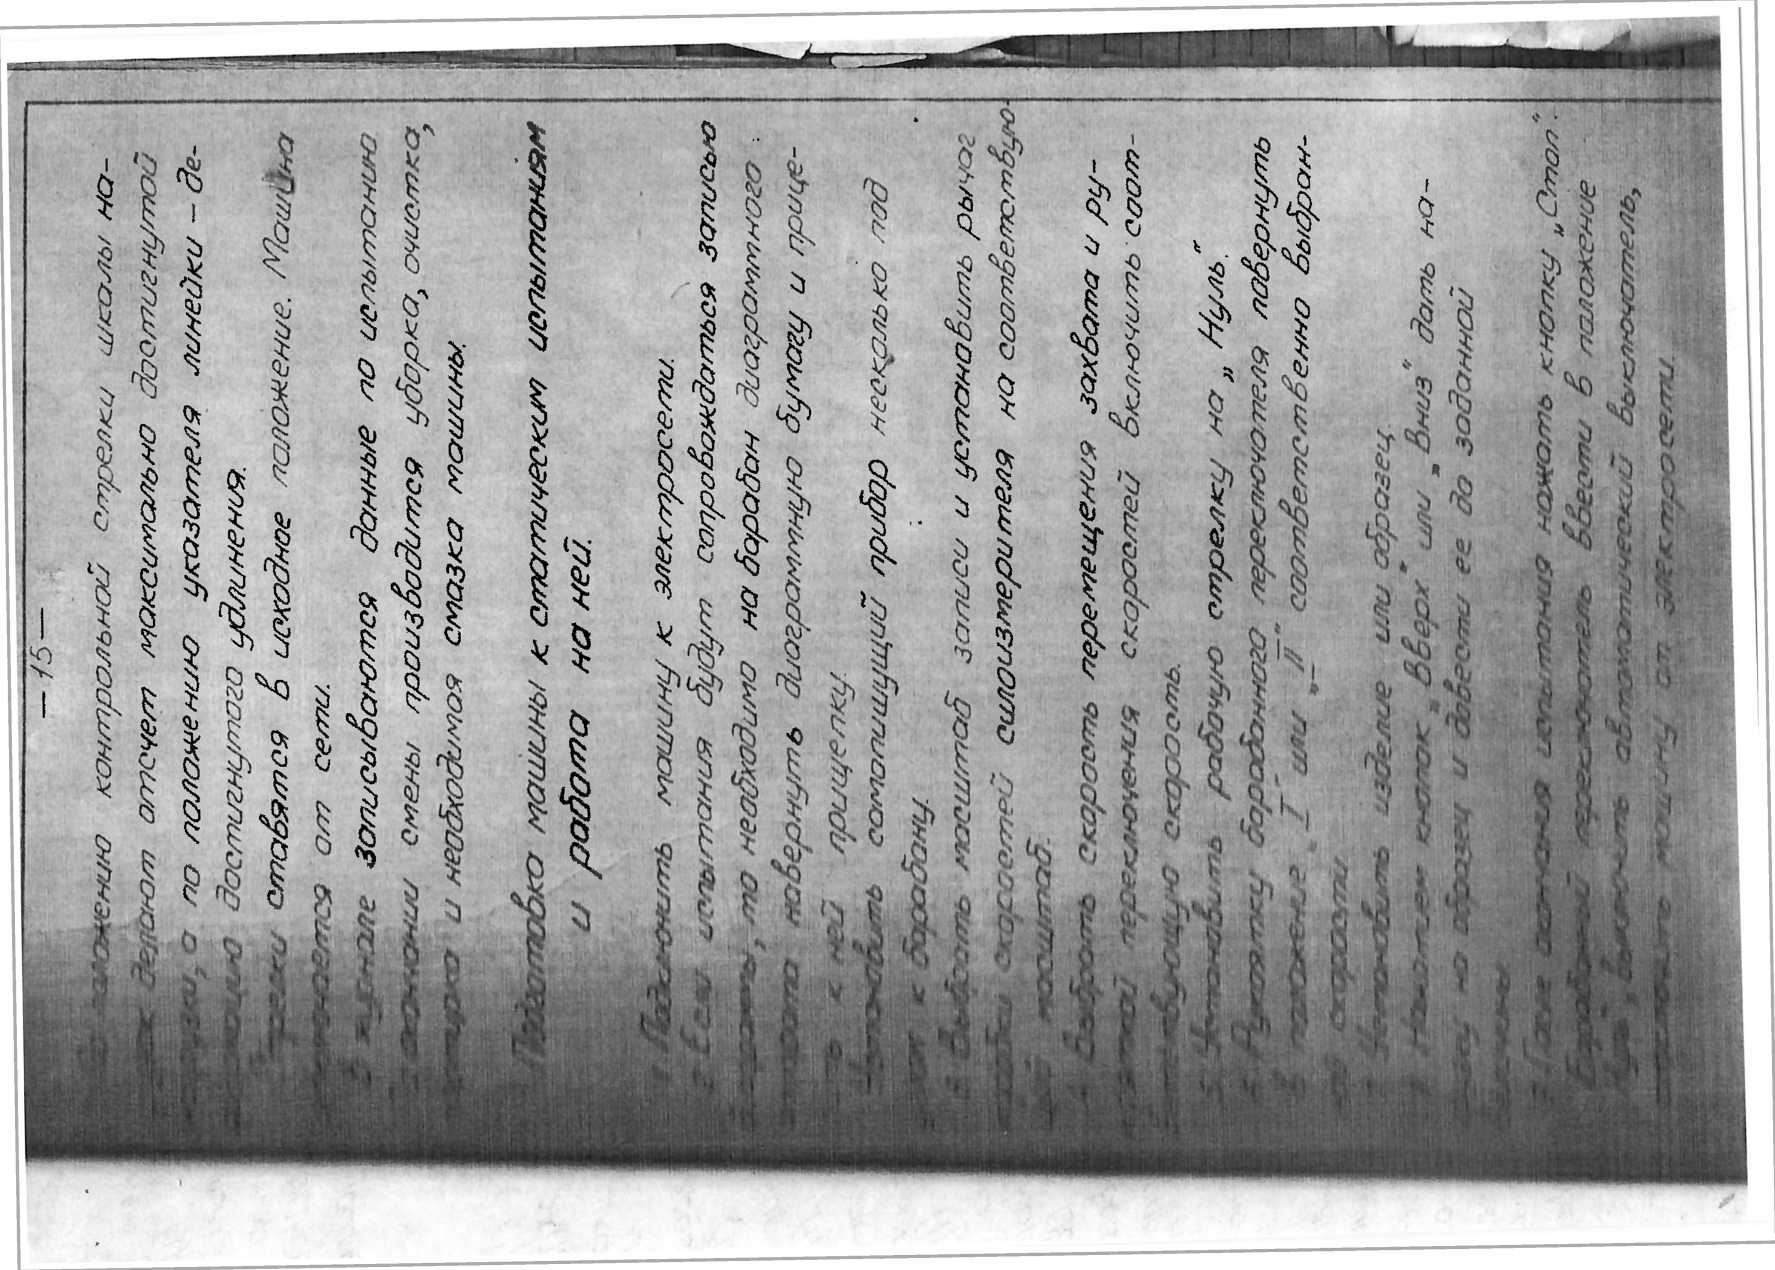 — 15 —
положению контрольной стрелки шкалы на-
делают отсчет максимально достигнутой
а по положению указателя линейки – де-
достигнутого удлинения.
ставятся в исходное положение. Машина
от сети.
В журнале записываются данные по испытанию
окончании смены производится уборка, очистка,
и необходимая смазка машины.
Подготовка машины к статическим испытаниям
и работа на ней.
1 Подключить машину к электросети.
2 Если испытания будут сопровождаться записью
то необходимо на барабан диаграммного
навернуть диаграммную бумагу и прице-
к ней прищепку.
Установить самопишущий прибор несколько под
к барабану.
Выбрать масштаб записи и установить рычаг
скоростей силоизмерителя на соответствую-
масштаб.
Выбрать скорость перемещения захвата и ру-
переключения скоростей включить соот-
скорость.
5. Установить рабочую стрелку на „Нуль".
Рукоятку барабанного переключателя повернуть
в положение „I" или „II" соответственно выбран-
скорости
Установить изделие или образец.
Нажатием кнопок „Вверх" или „Вниз" дать на-
на образец и довести ее до заданной
После окончания испытания нажать кнопку „Стоп".
Барабанный переключатель ввести в положение
выключить автоматический выключатель,
машину от электросети.